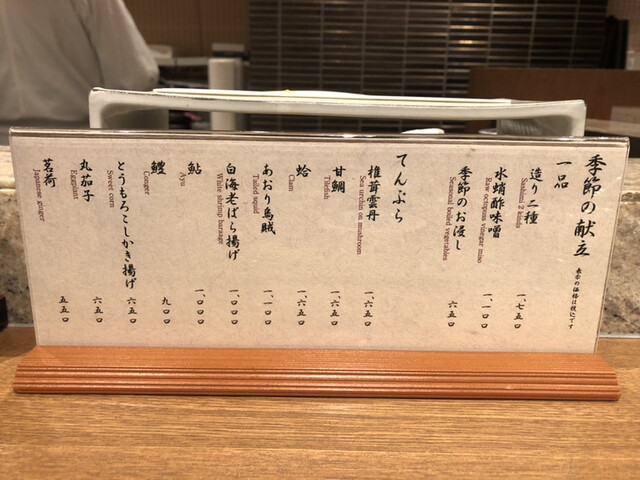 季節の献立 表示の価格は税込です
一品
造り二種 一、七五〇
Sashimi 2 kinds
水蛸酢味噌 一、一〇〇
Raw octopuss vinegar miso
季節のお浸し 六五〇
Seasonal boiled vegetables
てんぷら
椎茸雲丹 一、六五〇
Sea urchin on mushroom
甘鯛 一、六五〇
Tilefish
蛤 一、六五〇
Clam
あおり烏賊 一、一〇〇
Tailed squid
白海老ばら揚げ 一、〇〇〇
White shrimp baraage
鮎 一、〇〇〇
Ayu
鱧 九〇〇
Conger
とうもろこしかき揚げ 六五〇
Sweet corn
丸茄子 六五〇
Eggplant
茗荷 五五〇
Japanese ginger